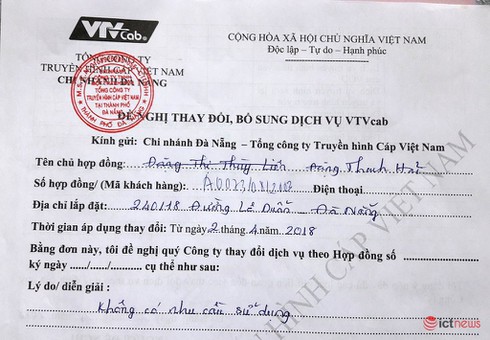 VTVCab
CỘNG HÒA XÃ HỘI CHỦ NGHĨA VIỆT NAM
Độc lập - Tự do - Hạnh phúc
TỔNG CÔNG TY
TRUYỀN HÌNH CÁP VIỆT NAM
CHI NHÁNH ĐÀ NẴNG
TỔNG CÔNG TY
TRUYỀN HÌNH CÁP VIỆT NAM
TẠI THÀNH PHỐ
ĐÀ NẴNG
ĐỀ NGHỊ THAY ĐỔI, BỔ SUNG DỊCH VỤ VTVcab
Kính gửi: Chi nhánh Đà Nẵng – Tổng công ty Truyền hình Cáp Việt Nam
Tên chủ hợp đồng: Đặng Thị Thùy Đặng Thanh
Số hợp đồng/ (Mã khách hàng): Điện thoại
Địa chỉ lắp đặt: 240118 Đường Lê Duẩn - Đà Nẵng
Thời gian áp dụng thay đổi: Từ ngày 2 tháng 4 năm 2018
Bằng đơn này, tôi đề nghị quý Công ty thay đổi dịch vụ theo Hợp đồng số
ký ngày ...../...../..... cụ thể như sau:
Lý do/ diễn giải :
Không có nhu cầu sử dụng
ictnews